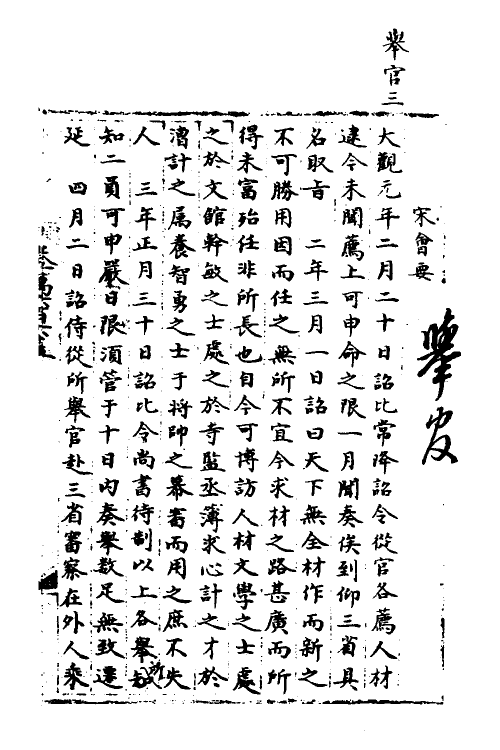 舉官三
宋會要
大觀元年二月二十日詔比常降詔令從官各薦人材
逮今未聞薦上可申命之限一月聞奏俟到仰三省具
名取旨　二年三月一日詔曰天下無全材作而新之
不可勝用因而任之無所不宜今求材之路甚廣而所
得未富殆任非所長也自今可博訪人材文學之士處
之於文館幹敏之士處之於寺監丞簿求心計之才於
漕計之属養智勇之士于將帥之幕審而用之庶不失
人　三年正月三十日詔比令尚書待制以上各舉所
知二員可申嚴日限須管于十日内奏舉数足無致遷
延　四月二日詔侍從所舉官赴三省審察在外人乘
舉官